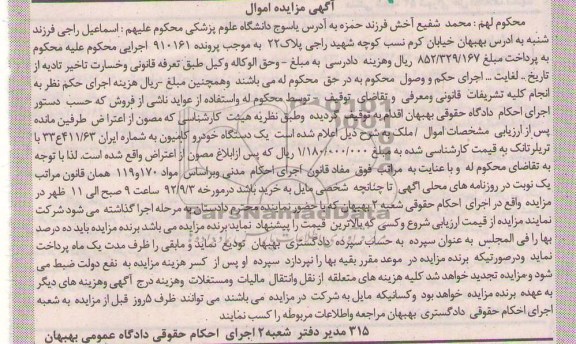 آگهی مزایده اموال
محکوم لهم : محمد شفیع آخش فرزند حمزه به آدرس یاسوج دانشگاه علوم پزشکی محکوم علیهم : اسماعیل راجی فرزند
شنبه به ادرس بهبهان خیابان کرم نسب کوچه شهید راجی پلاک۲۲ به موجب پرونده ۹۱۰۱۶۱ اجرایی محکوم علیه محکوم
به پرداخت مبلغ ۸۵۲/۳۲۹/۱۶۷ ریال وهزینه دادرسی به مبلغ - وحق الوکاله وکیل طبق تعرفه قانونی وخسارت تاخیر تادیه از
تاریخ .. لغایت ... اجرای حکم و وصول محکوم به در حق محکوم له می باشند وهمچنین مبلغ -ریال هزینه اجرای حکم نظر به
انجام کلیه تشریفات قانونی ومعرفی و تقاضای توقیف توسط محکوم له واستفاده از عواید ناشی از فروش که حسب دستور
اجرای احکام دادگاه حقوقی بهبهان اقدام به توقیف گردیده وطبق نظریه هیئت کارشناسی که مصون از اعتراض طرفین مانده
پس از ارزیابی مشخصات اموال /ملک به شرح ذیل اعلام شده است یک دستگاه خودرو کامیون به شماره ایران ۴۱۱/۶۳ع۳۳ با
تریلرتانک به قیمت کارشناسی شده به مبلغ ۱/۱۸۰/۰۰۰/۰۰۰ ریال که پس ازابلاغ مصون از اعتراض واقع شده است. لذا با توجه
به تقاضای محکوم له و با عنایت به مراتب فوق مفاد قانون اجرای احکام مدنی وبراساس مواد ۱۷۰و۱۱۹ همان قانون مراتب
یک نوبت در روزنامه های محلی آگهی تا چنانچه شخصی مایل به خرید باشد درمورخه ۹۲/۹/۳ ساعت ۹ صبح الی ۱۱ ظهر در
مزایده واقع در اجرای احکام حقوقی شعبه ۲ بهبهان که با حضور نماینده محترم دادستان به مرحله اجرا گذاشته می شود شرکت
نمایند مزایده از قیمت ارزیابی شروع وکسی که بالاترین قیمت را پیشنهاد نماید برنده مزایده می باشد برنده مزایده باید ده درصد
بها را فی المجلس به عنوان سپرده به حساب سپرده دادگستری بهبهان تودیع نماید و مابقی را ظرف مدت یک ماه پرداخت
نماید ودرصورتیکه برنده مزایده در موعد مقرر بقیه بها را نپردازد سپرده او پس از کسر هزینه مزایده به نفع دولت ضبط می
شود و مزایده تجدید خواهد شد کلیه هزینه های متعلقه از نقل وانتقال مالیات ومستغلات وهزینه درج آگهی وهزینه های دیگر
به عهده برنده مزایده خواهد بود وکسانیکه مایل به شرکت در مزایده می باشند می توانند ظرف ۵روز قبل از مزایده به شعبه
اجرای احکام حقوقی دادگستری بهبهان مراجعه واطلاعات مربوطه را کسب نمایند
۳۱۵ مدیر دفتر شعبه۲ اجرای احکام حقوقی دادگاه عمومی بهبهان